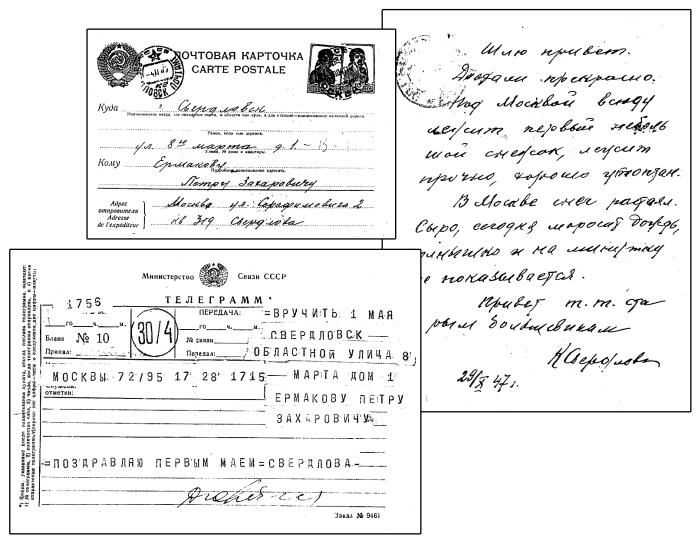 ПОЧТОВАЯ КАРТОЧКА
CARTE POSTALE
Куда г. Свердловск
ул. 8го марта д. 1-
Кому Ермакову
Петру Захаровичу
Адрес
отправителя
Adresse
de l'expéditeur
Москва ул. Серафимовича 2
кв 319 Свердлова
Шлю привет.
Доехали прекрасно.
Под Москвой всюду
лежит первый неболь
шой снежок, лежит
прочно, хорошо утоптан.
В Москве снег растаял.
Сыро, сегодня моросит дождь,
солнышко и на минутку
не показывается.
Привет т.т. ста
рым большевикам
КСвердлова
29/X 47 г.
Министерство Связи СССР
ТЕЛЕГРАММ
1756
го ч. м.
Бланк № 10
Принял:
30/4
ПЕРЕДАЧА:
го ч. м.
№ связи
Передал:
=ВРУЧИТЬ 1 МАЯ
СВЕРДЛОВСК
ОБЛАСТНОЙ УЛИЦА 8
МОСКВЫ 72/95 17 28 1715
МАРТА ДОМ 1
отметки:
ЕРМАКОВУ ПЕТРУ
ЗАХАРОВИЧУ
=ПОЗДРАВЛЯЮ ПЕРВЫМ МАЕМ=СВЕРДЛОВА-
Заказ № 9461